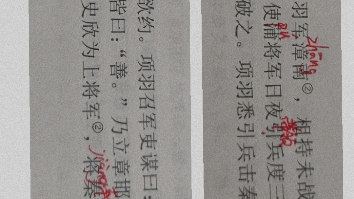 羽军漳南②，相持未战
使蒲将军日夜引兵度三
破之。项羽悉引兵击秦
欲约。项羽召军吏谋曰：
皆曰：“善。”乃立章邯
史欣为上将军②，将秦
zhāng